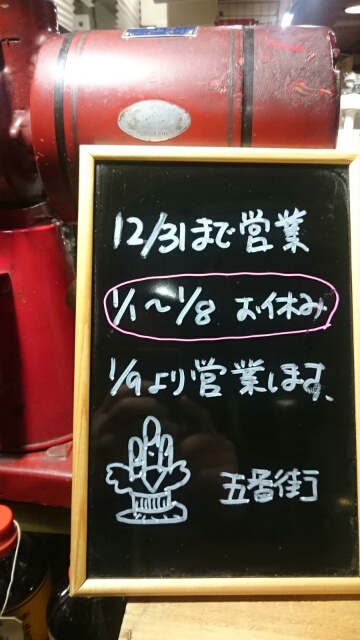 12/31まで営業
1/1〜1/8 お休み
1/9より営業します、
五番街